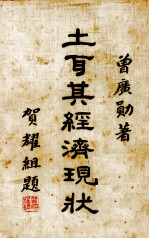 曾廣勛著
土耳其經濟現狀
賀耀組題